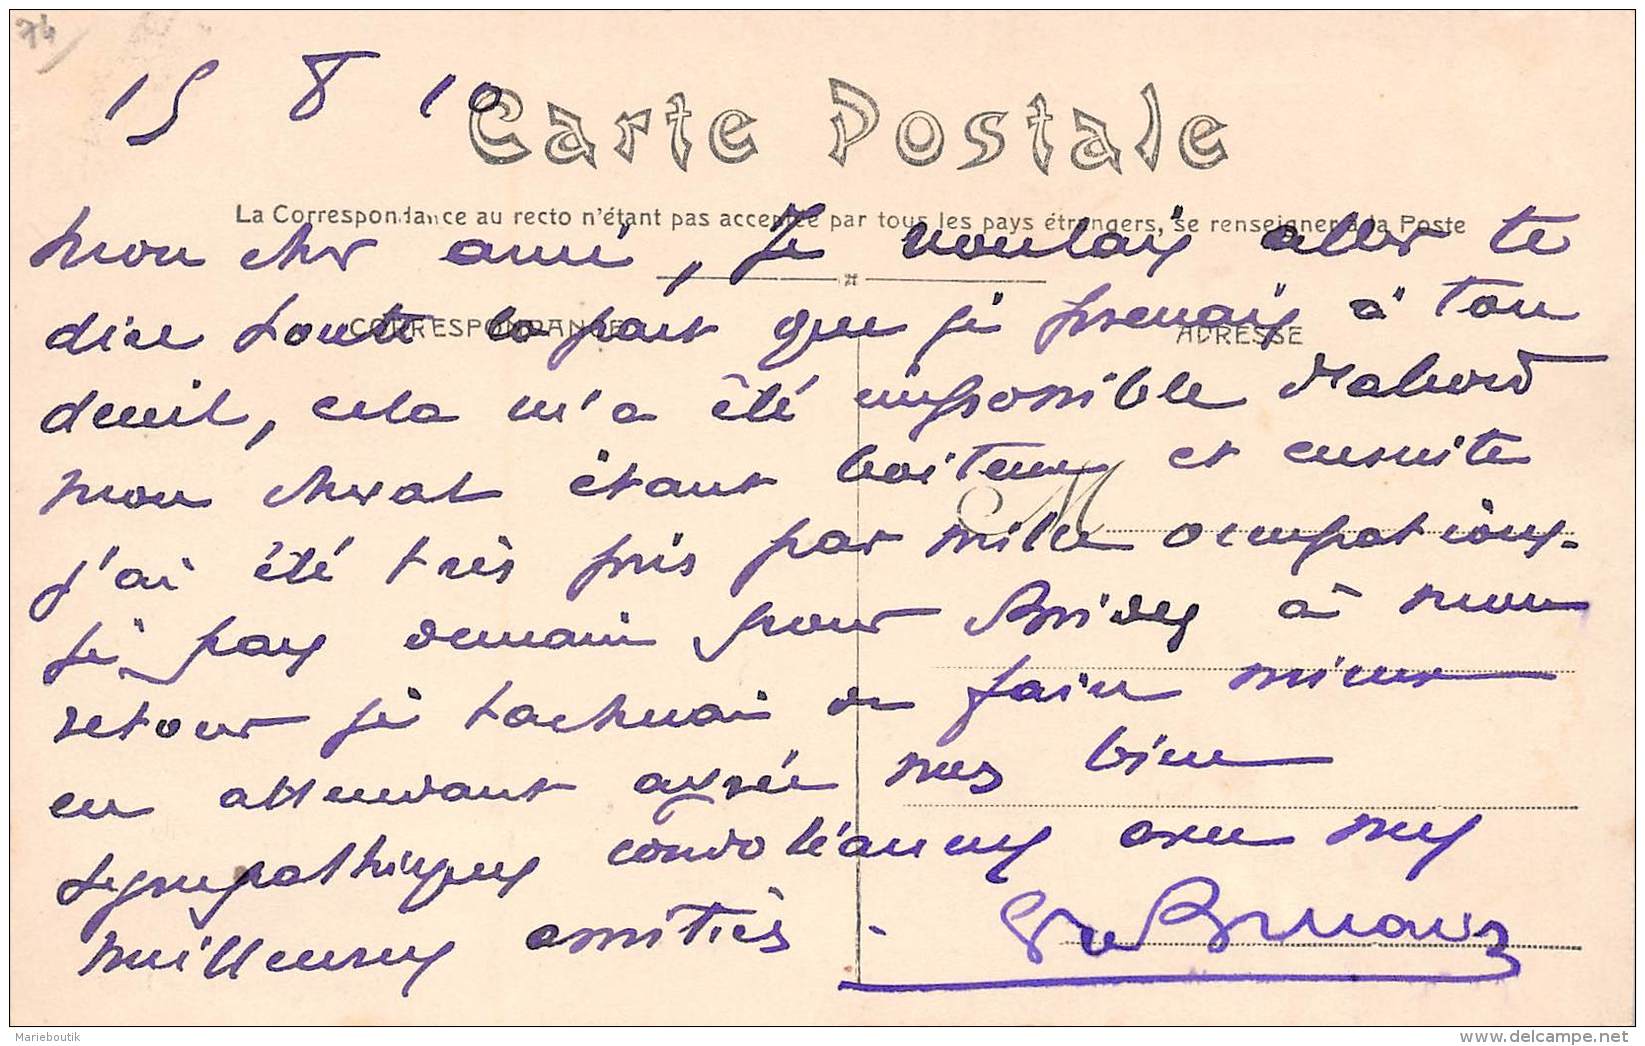 74
15 8 10
Carte Postale
La Correspondance au recto n'étant pas acceptée par tous les pays étrangers, se renseigner à la Poste
mon cher ami, Je voulais aller te
CORRESPONDANCE
ADRESSE
dire toute la part que je prenais à ton
deuil, cela m'a été impossible d'abord
mon cheval étant boiteux et ensuite
M
j'ai été très pris par mille occupations.
je pars demain pour à mon
retour je tacherai de faire mieux
en attendant agrée mes bien
sympathiques condoléances avec mes
meilleures amitiés.
Marieboutik
delcampe.net